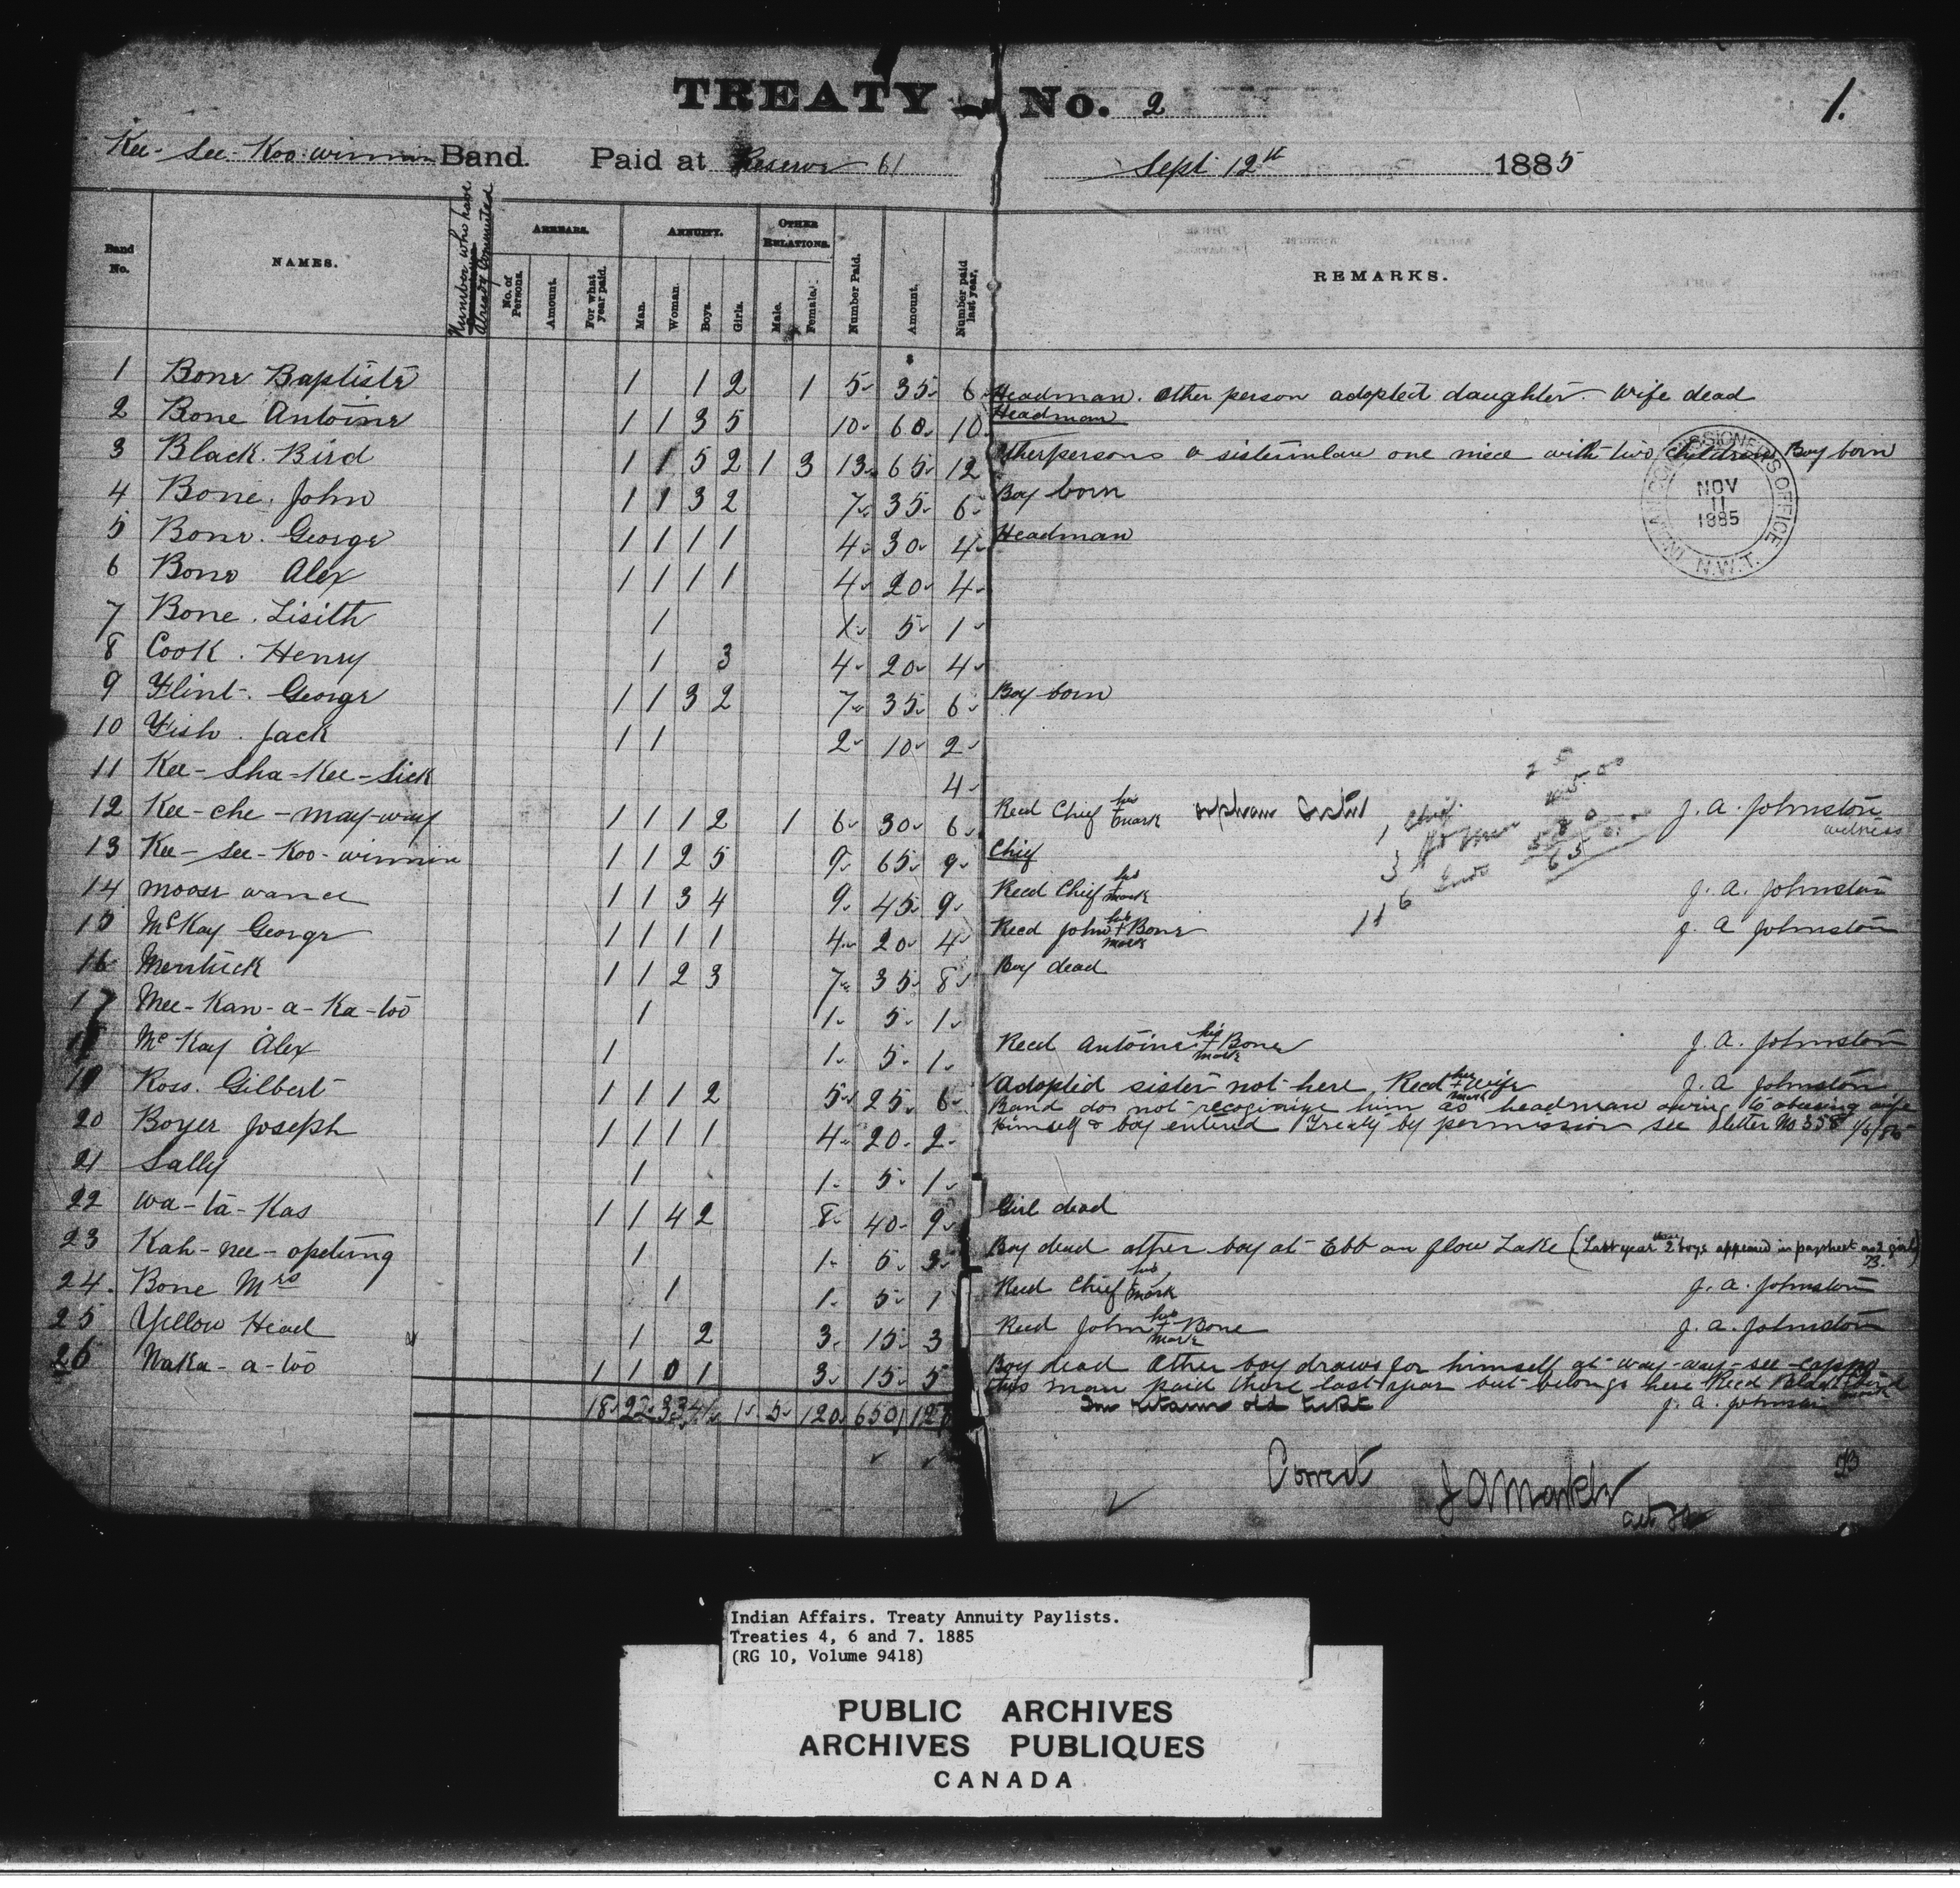 TREATY No. 2
1.
Kee-See-Koo-winnin Band. Paid at Reserve 61 Sept 12th 1885
Band No.
NAMES.
Number who have already Commuted
ARREARS.
No. of Persons.
Amount.
For what year paid.
ANNUITY.
Man.
Woman.
Boys.
Girls.
OTHER RELATIONS.
Male.
Female.
Number Paid.
Amount.
Number paid last year.
REMARKS.
1 Bone Baptiste 1 1 2 1 5 35 6 Headman. Other person adopted daughter. Wife dead
2 Bone Antoine 1 1 3 5 10 60 10 Headman
3 Black Bird 1 1 5 2 1 3 13 65 12 Other persons a sister in law one niece with two children Boy born
4 Bone. John 1 1 3 2 7 35 6 Boy born
5 Bone. George 1 1 1 1 4 30 4 Headman
6 Bone Alex 1 1 1 1 4 20 4
7 Bone. Lisith 1 1 5 1
8 Cook. Henry 1 3 4 20 4
9 Flint. George 1 1 3 2 7 35 6 Boy born
10 Fish. Jack 1 1 2 10 2
11 Kee-Sha-Kee-Sick 4
12 Kee-che-may-way 1 1 1 2 1 6 30 6 Recd Chief his + mark orphan J. A. Johnston witness
13 Kee-See-Koo-winnin 1 1 2 5 9 65 9 Chief
14 Moose 1 1 3 4 9 45 9 Recd Chief his + mark J. A. Johnston
15 McKay George 1 1 1 1 4 20 4 Recd John his + mark Bone J. A Johnston
16 Mentuck 1 1 2 3 7 35 8 Boy dead
17 Mee-Kan-a-Ka-too 1 1 5 1
18 McKay Alex 1 1 5 1 Recd Antoine his + mark Bone J. A. Johnston
19 Ross. Gilbert 1 1 1 2 5 25 6 Adopted sister not here, Recd her + mark wife J. A Johnston
Band do not recognize him as headman owing to abusing wife
20 Boyer Joseph 1 1 1 1 4 20 2 himself & boy entered Treaty by permission see letter No 358
21 Sally 1 1 5 1
22 Wa-ta-Kas 1 1 4 2 8 40 9 Girl dead
23 Kah-nee-opetung 1 1 5 3 Boy dead other boy at Ebb an flow Lake (Last year 2 boys appeared in paysheet as 2 girls)
24. Bone Mrs 1 1 5 1 Recd Chief his + mark J. A. Johnston
25 Yellow Head 1 2 3 15 3 Recd John his + mark Bone J. A. Johnston
26 Naka-a-too 1 1 0 1 3 15 5 Boy dead Other boy draws for himself at way-way-see-cappo
this man paid there last year but belongs here Recd Black Bird mark
retains old J. A. Johnston
18 22 33 41 1 5 120 650
Chief
3
6
11
65
INDIAN COMMISSIONER'S OFFICE
NOV
11
1885
N.W.T.
Correct
J A Markle
Indian Affairs. Treaty Annuity Paylists.
Treaties 4, 6 and 7. 1885
(RG 10, Volume 9418)
PUBLIC ARCHIVES
ARCHIVES PUBLIQUES
CANADA